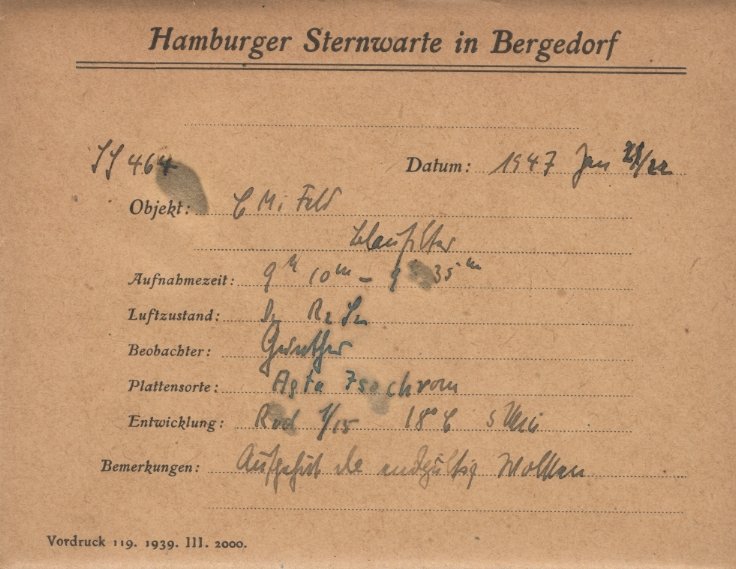 Hamburger Sternwarte in Bergedorf
464 Datum: 1947 Jan 21/22
Objekt: C Mi Feld
Blaufilter
Aufnahmezeit: 9h 10m – 9h 35m
Luftzustand: D2 R2 S2
Beobachter:
Plattensorte: Agfa Isochrom
Entwicklung: Rod 1/15 18° C 5 Min
Bemerkungen: Aufgehört da endgültig Wolken
Vordruck 119. 1939. III. 2000.